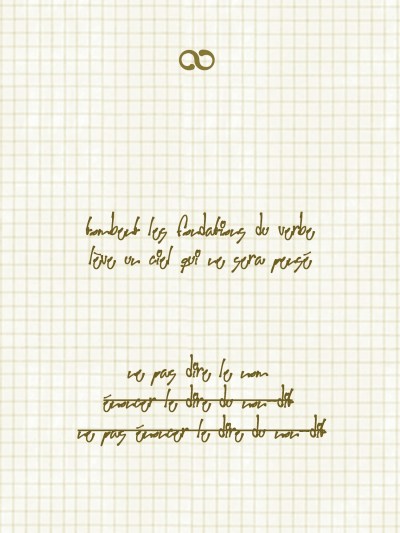 ∞
tombent les fondations du verbe
lève un ciel qui ne sera pensé
ne pas dire le nom
énoncer le dire du non-dit
ne pas énoncer le dire du non-dit